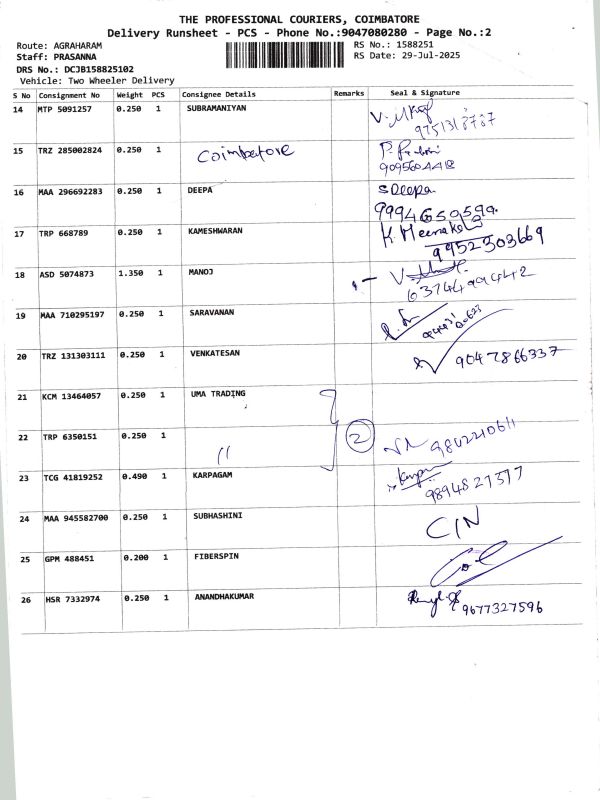 THE PROFESSIONAL COURIERS, COIMBATORE
Delivery Runsheet - PCS - Phone No.:9047080280 - Page No.:2
Route: AGRAHARAM RS No.: 1588251
Staff: PRASANNA RS Date: 29-Jul-2025
DRS No.: DCJB158825102
Vehicle: Two Wheeler Delivery
S No Consignment No Weight PCS Consignee Details Remarks Seal & Signature
14 MTP 5091257 0.250 1 SUBRAMANIYAN
9751318787
15 TRZ 285002824 0.250 1 Coimbatore
9095604418
16 MAA 296692283 0.250 1 DEEPA S Deepa
9994659599
17 TRP 668789 0.250 1 KAMESHWARAN K. Meenake
9952303669
18 ASD 5074873 1.350 1 MANOJ
19 MAA 710295197 0.250 1 SARAVANAN
20 TRZ 131303111 0.250 1 VENKATESAN 9047866337
21 KCM 13464057 0.250 1 UMA TRADING
22 TRP 6350151 0.250 1 〃 2 9842210611
23 TCG 41819252 0.490 1 KARPAGAM
9894827577
24 MAA 945582700 0.250 1 SUBHASHINI C/N
25 GPM 488451 0.200 1 FIBERSPIN
26 HSR 7332974 0.250 1 ANANDHAKUMAR 9677327596